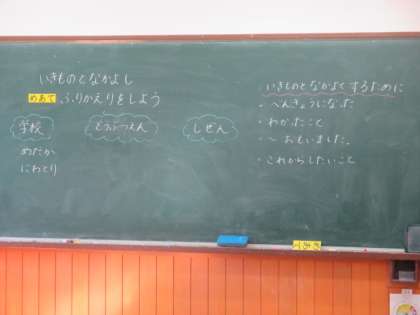 いきものとなかよし
めあて ふりかえりをしよう
学校
どうぶつえん
しぜん
めだか
にわとり
いきものとなかよくするために
・べんきょうになった
・わかったこと
・〜おもいました。
・これからしたいこと